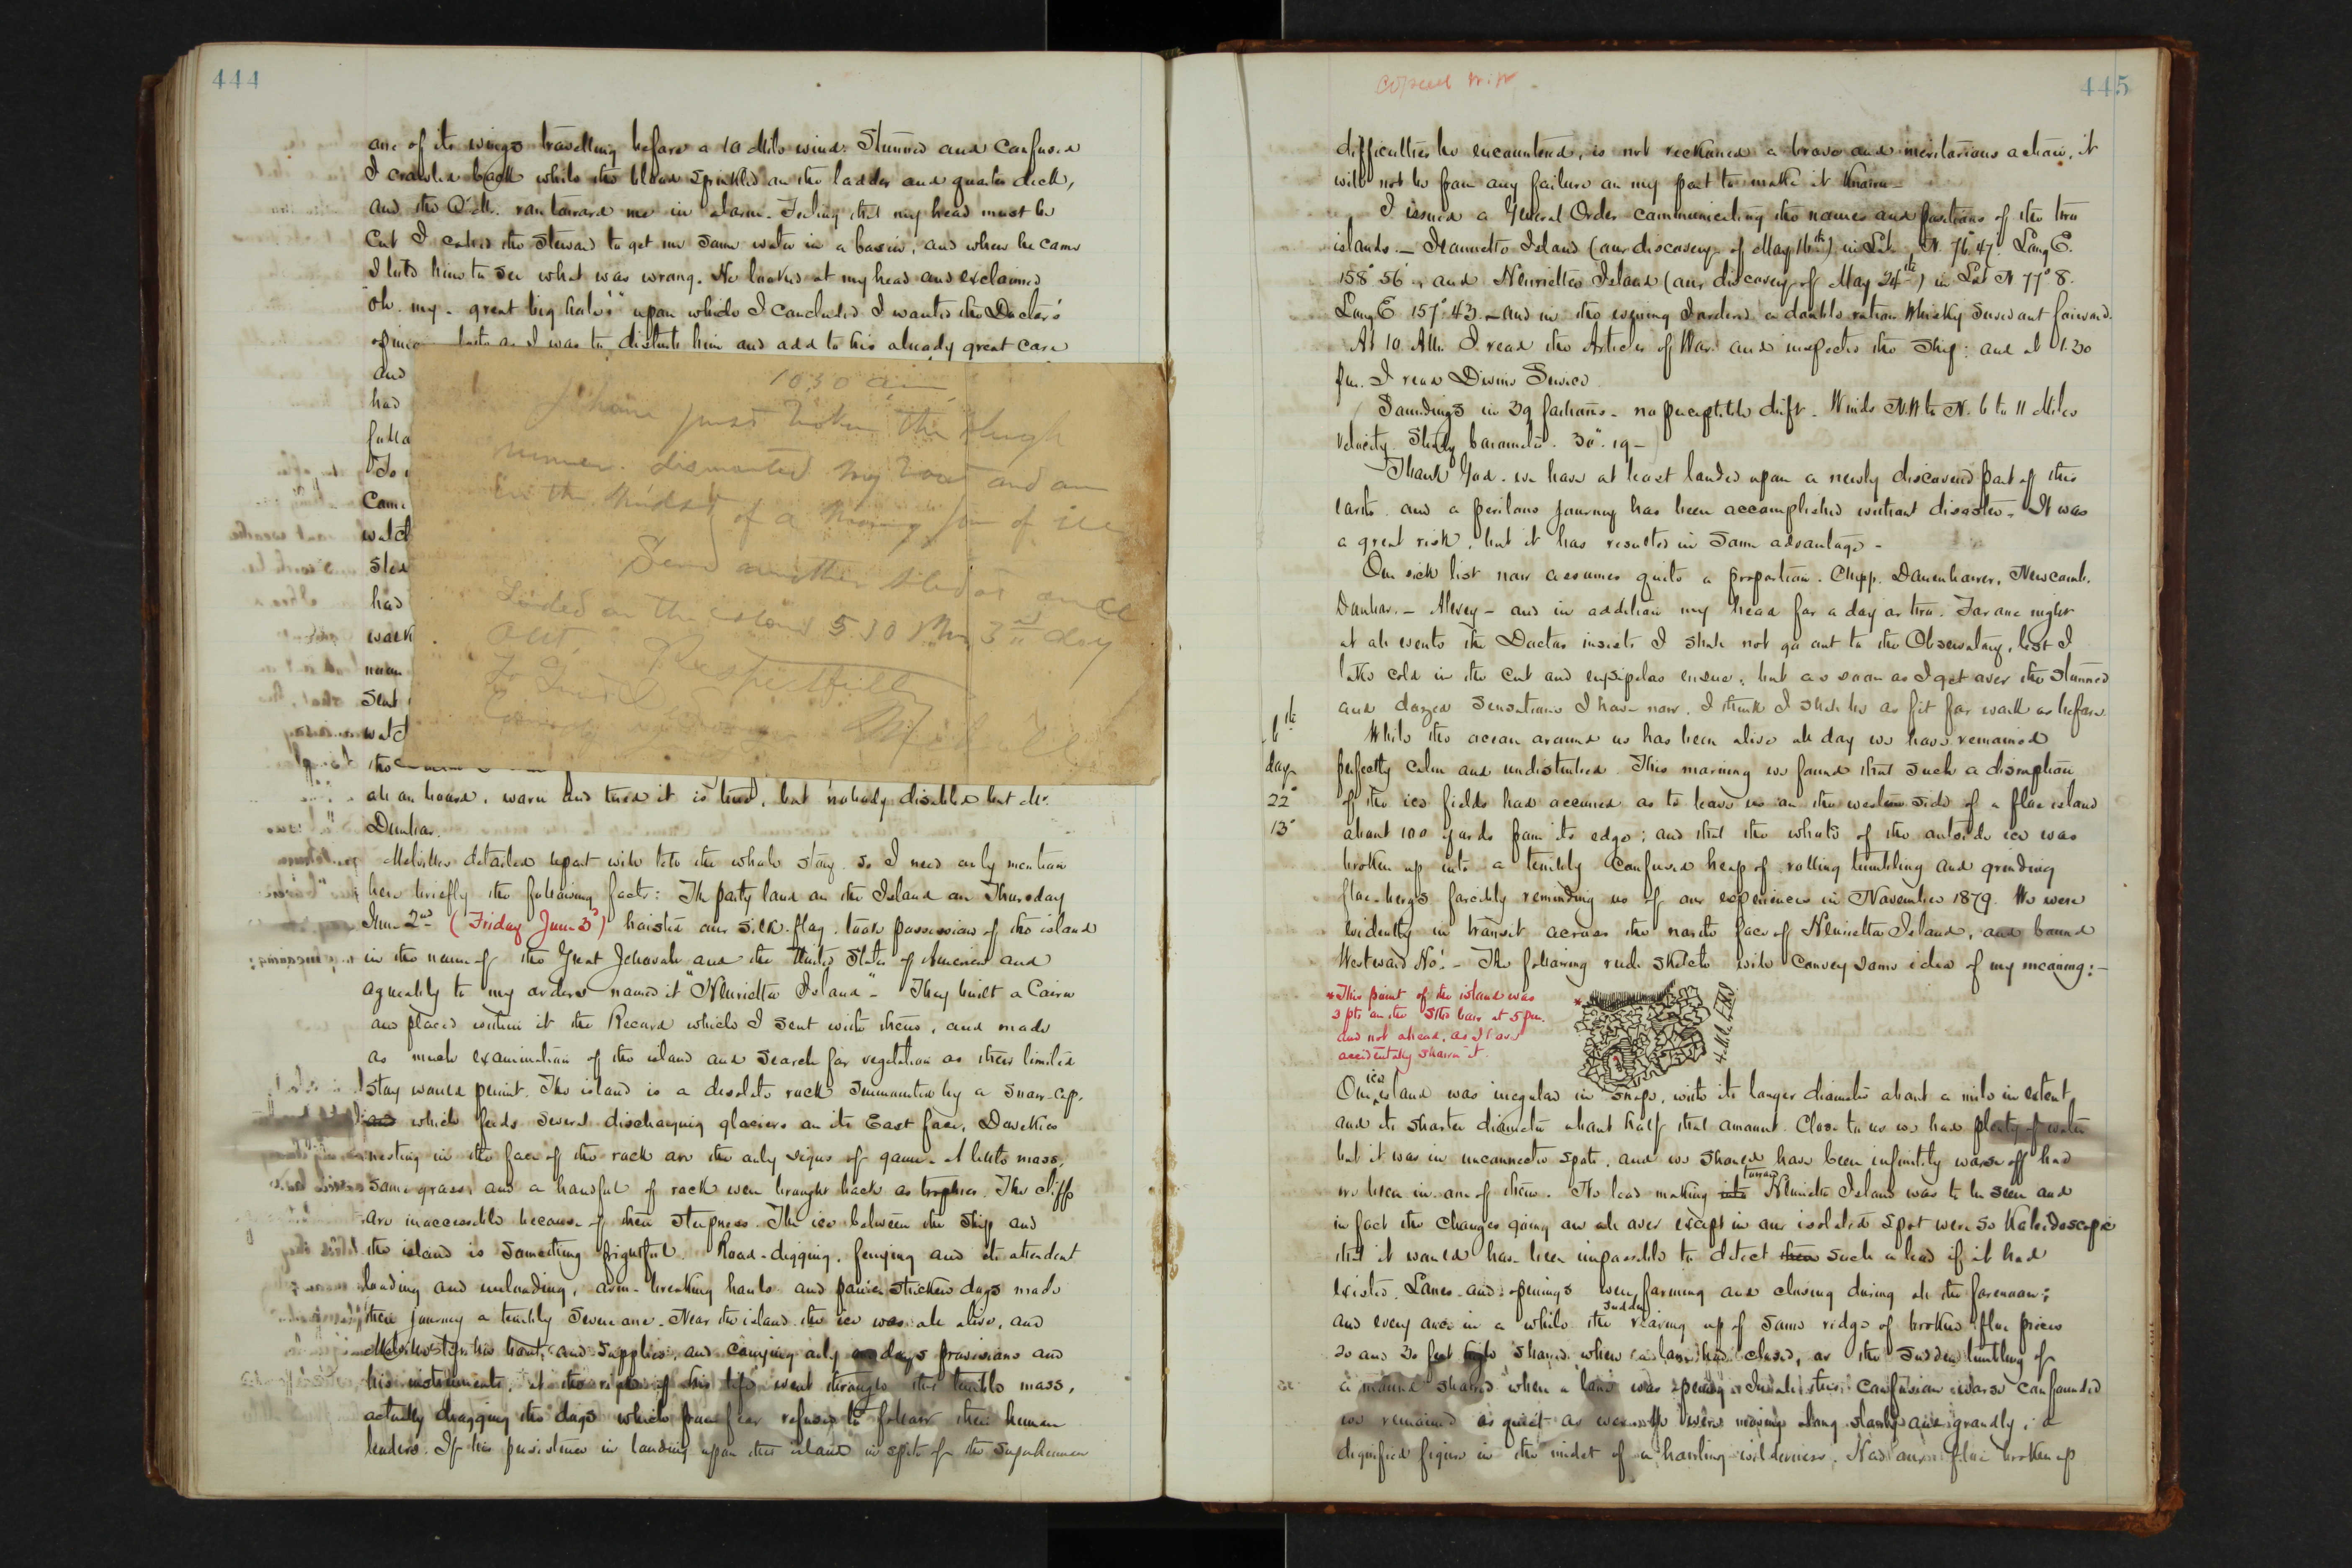 444
one of its wings travelling before a 10 Mile wind. Stunned and confused
I crawled back while the blood sprinkled on the ladder and quarter deck,
and the Q'Mr. ran toward me in alarm. Feeling that my head must be
cut I called the steward to get me some water in a basin, and when he came
I told him to see what was wrong. He looked at my head and exclaimed
"oh. my - great big hole!" upon which I concluded I wanted the Doctor's
loth as I was to disturb him and add to his already great care
and
had
To
Came
watch
sled
had
work
noon
sent
watch
the
all on board, worn and tired it is true, but nobody disabled but Mr.
Dunbar.
Melville's detailed report will tell the whole story. So I need only mention
here briefly the following facts: The party land on the Island on Thursday
June 2nd (Friday June 3d) hoisted our silk flag, took possession of the island
in the name of the Great Jehovah and the United States of America and
agreeably to my orders named it "Henrietta Island" - They built a Cairn
and placed within it the Record which I sent with them, and made
as much examination of the island and search for vegetation as their limited
stay would permit. The island is a desolate rock surmounted by a snow-cap,
and which feeds several discharging glaciers on its East face, Dovekies
nesting in the face of the rock are the only signs of game. A little moss,
some grass, and a handful of rock were brought back as trophies. The cliffs
are inaccessible because of their steepness. The ice between the Ship and
the island is something frightful. Road-digging, ferrying and its attendant
loading and unloading, arm-breaking hauls and panic stricken dogs made
their journey a terribly severe one. Near the island the ice was all alive, and
Melville left his boat, and supplies, and carrying only days provisions and
his instruments, at the risk of his life went through the terrible mass,
actually dragging the dogs which from fear refused to follow their human
leaders. If his persistence in landing upon this island in spite of the superhuman
10 30 am
I have just broken the sleigh
runner. dismounted my boat and am
in the midst of a moving jam of ice
Send another sled at once
Landed on the island 5.30 PM 3rd day
out.
Respectfully
To Lieut
Melville
Copied
445
difficulties he encountered, is not reckoned a brave and meritorious action, it
will not be from any failure on my part to make it known -
I issued a General Order communicating the names and positions of the two
islands. - Jeannette Island (our discovery of May 16th) in Lat. N. 76° 47' Long E.
158° 56' and Henrietta Island (our discovery of May 24th) in Lat N 77° 8'
Long E 157° 43' - and in the evening I ordered a double ration Whisky served out forward.
At 10 AM. I read the Articles of War and inspected the Ship: and at 1.30
pm. I read Divine Service.
Soundings in 39 fathoms - no perceptible drift. Winds N.W to N. 6 to 11 Miles
velocity. Steady barometer. 30". 19 -
Thank God. we have at least landed upon a newly discovered part of this
earth and a perilous journey has been accomplished without disaster. It was
a great risk, but it has resulted in some advantage -
Our sick list now assumes quite a proportion. Chipp. Danenhower, Newcomb.
Dunbar. - Alexey - and in addition my head for a day or two. For one night
at all events the Doctor insists I shall not go out to the Observatory, lest I
take cold in the cut and erysipelas ensue; but as soon as I get over the stunned
and dazed sensations I have now, I think I shall be as fit for work as before.
6th
day
22°
13'
While the ocean around us has been alive all day we have remained
perfectly calm and undisturbed. This morning we found that such a disruption
of the ice fields had occurred as to leave us on the western side of a floe island
about 100 yards from its edge; and that the whole of the outside ice was
broken up into a terribly confused heap of rolling tumbling and grinding
floe-bergs forcibly reminding us of our experiences in November 1879. We were
evidently in transit across the north face of Henrietta Island, and bound
Westward Ho! - The following rude sketch will convey some idea of my meaning: -
* This point of the island was
3 pts on the Stb bow at 5 pm.
and not ahead, as I have
accidentally shown it.
*
Our ice island was irregular in shape, with its larger diameter about a mile in extent
and its shorter diameter about half that amount. Close to us we had plenty of water
but it was in unconnected spots, and we should have been infinitely worse off had
we been in one of them. No lead making into toward Henrietta Island was to be seen and
in fact the changes going on all over except in our isolated spot were so Kaleidoscopic
that it would have been impossible to detect them such a lead if it had
existed. Lanes and openings were forming and closing during all the forenoon;
and every once in a while the sudden rearing up of some ridge of broken floe pieces
20 and 30 feet high showed where a lane had closed, or the sudden tumbling of
a mound showed when a lane was opening. In all this confusion worse confounded
we remained as quiet as We were moving along slowly and grandly, a
dignified figure in the midst of a howling wilderness. Had our floe broken up